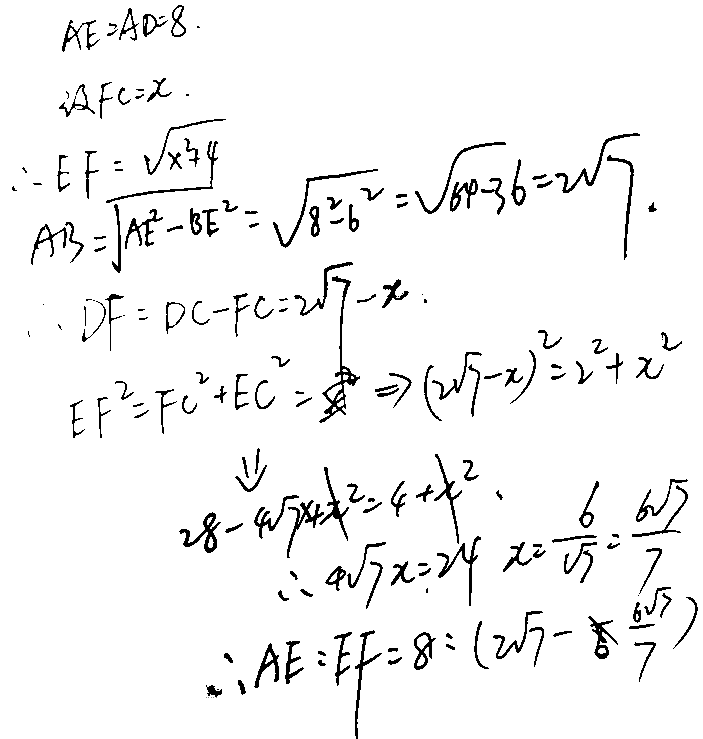 AE=AD=8.
设FC=x.
∴EF=√(x²+4)
AB=√(AE²-BE²)=√(8²-6²)=√(64-36)=2√7.
∴DF=DC-FC=2√7-x.
EF²=FC²+EC²= ⇒(2√7-x)²=2²+x²
⇓
28-4√7x+x²=4+x².
∴4√7x=24 x=6/√7=6√7/7
∴AE:EF=8:(2√7-6√7/7)